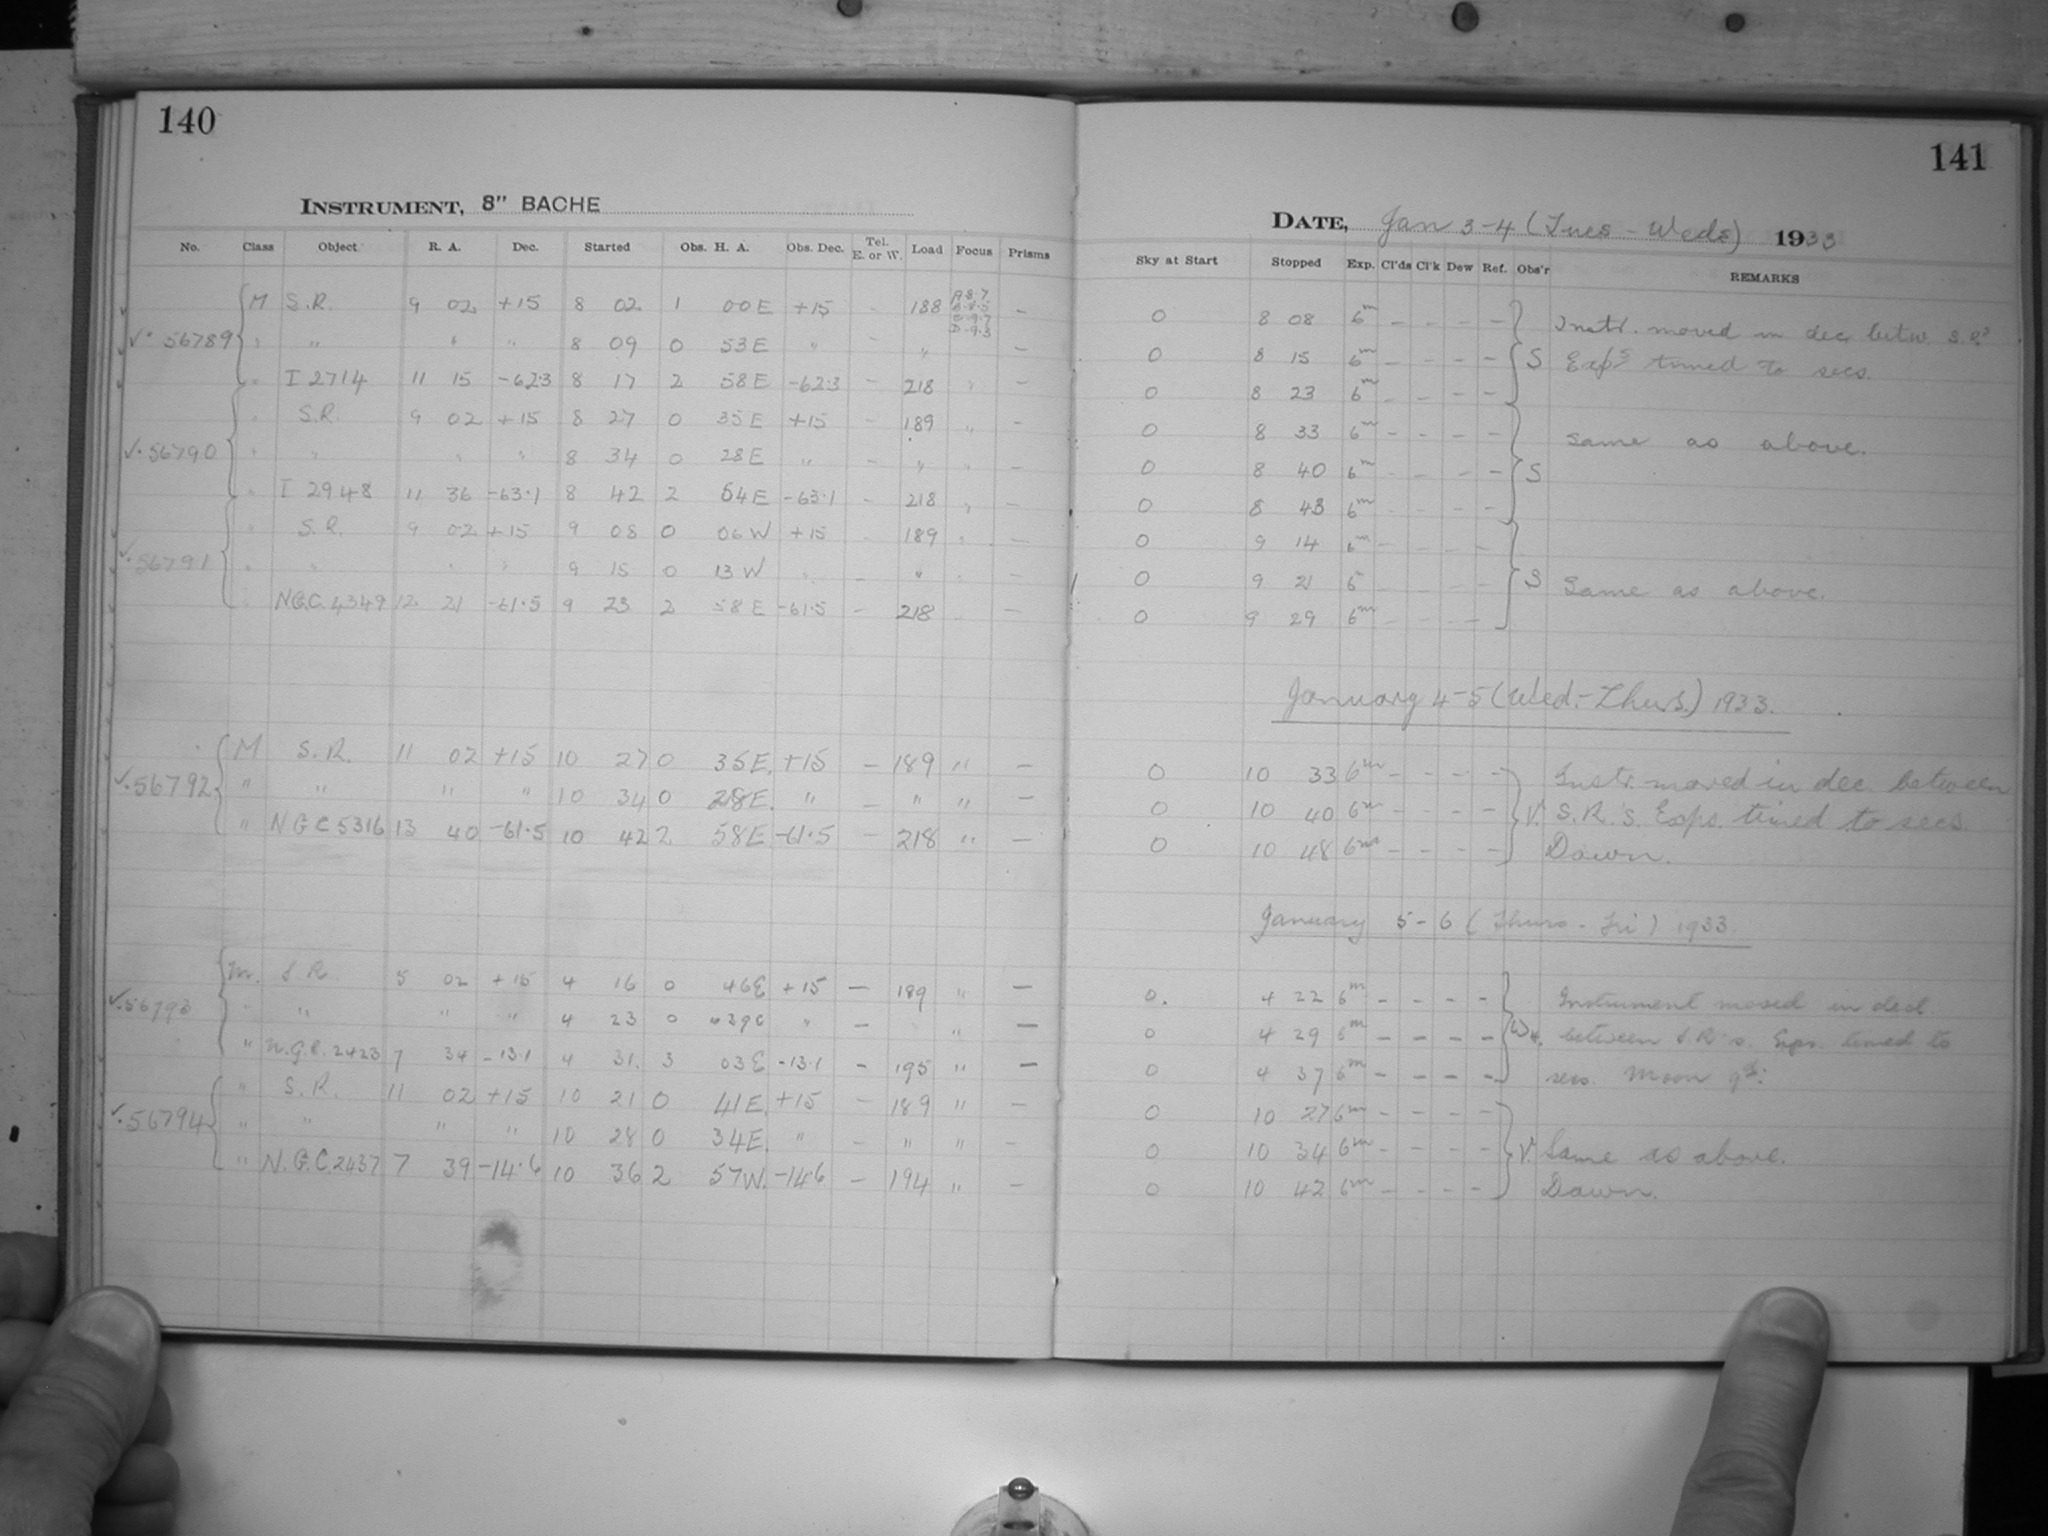 140
INSTRUMENT, 8" BACHE
No. Class Object R. A. Dec. Started Obs. H. A. Obs. Dec. Tel. E. or W. Load Focus Prisms
M S.R. 9 02 +15 8 02 1 00E +15 - 188 A 8.7 —
✓· 56789 " " " " 8 09 0 53E " " " —
" I 2714 11 15 -62.3 8 17 2 58E -62.3 - 218 " -
" S.R. 9 02 +15 8 27 0 35E +15 - 189 " -
✓· 56790 " " " " 8 34 0 28E " - " " -
" I 2948 11 36 -63.1 8 42 2 54E -63.1 - 218 " -
" S.R. 9 02 +15 9 08 0 06W +15 189 " —
✓· 56791 " " " " 9 15 0 13W " - " " -
NGC. 4349 12 21 -61.5 9 23 2 58E -61.5 - 218 -
M S.R. 11 02 +15 10 27 0 35E. +15 — 189 " —
✓· 56792 " " " " 10 34 0 28E. " — " " —
" NGC 5316 13 40 -61.5 10 42 2 58E -61.5 — 218 " —
M. S R. 5 02 +15 4 16 0 46E +15 — 189 " —
✓· 56793 " " " " 4 23 0 39E " — " —
" N.G.C. 2423 7 34 -13.1 4 31. 3 03E -13.1 — 195 " —
" S.R. 11 02 +15 10 21 0 41E. +15 — 189 " —
✓· 56794 " " " " 10 28 0 34E. " — " " -
" N.G.C. 2437 7 39 -14.6 10 36 2 57W. -14.6 — 194 " —
141
DATE, Jan 3-4 (Tues - Weds) 1933
Sky at Start Stopped Exp. Cl'ds Cl'k Dew Ref. Obs'r REMARKS
0 8 08 6m - - - - Instr. moved in dec betw. S.R.s
0 8 15 6m - - - - S Exps timed to secs.
0 8 23 6m - - - -
0 8 33 6m - - - - Same as above.
0 8 40 6m - - - - S
0 8 48 6m - - - -
0 9 14 6m - - - -
0 9 21 6 - - - S Same as above.
0 9 29 6m - - - -
January 4-5 (Wed.-Thurs.) 1933.
0 10 33 6m - - - - Instr. moved in dec. between
0 10 40 6m - - - - V. S.R.'s. Exps. timed to secs.
0 10 48 6m - - - - Dawn.
January 5-6 (Thurs - Fri) 1933.
0. 4 22 6m - - - - Instrument moved in decl.
0 4 29 6m - - - - between S R's. Exps. timed to
0 4 37 6m - - - - secs. Moon
0 10 27 6m - - - -
0 10 34 6m - - - - V. Same as above.
0 10 42 6m - - - - Dawn.